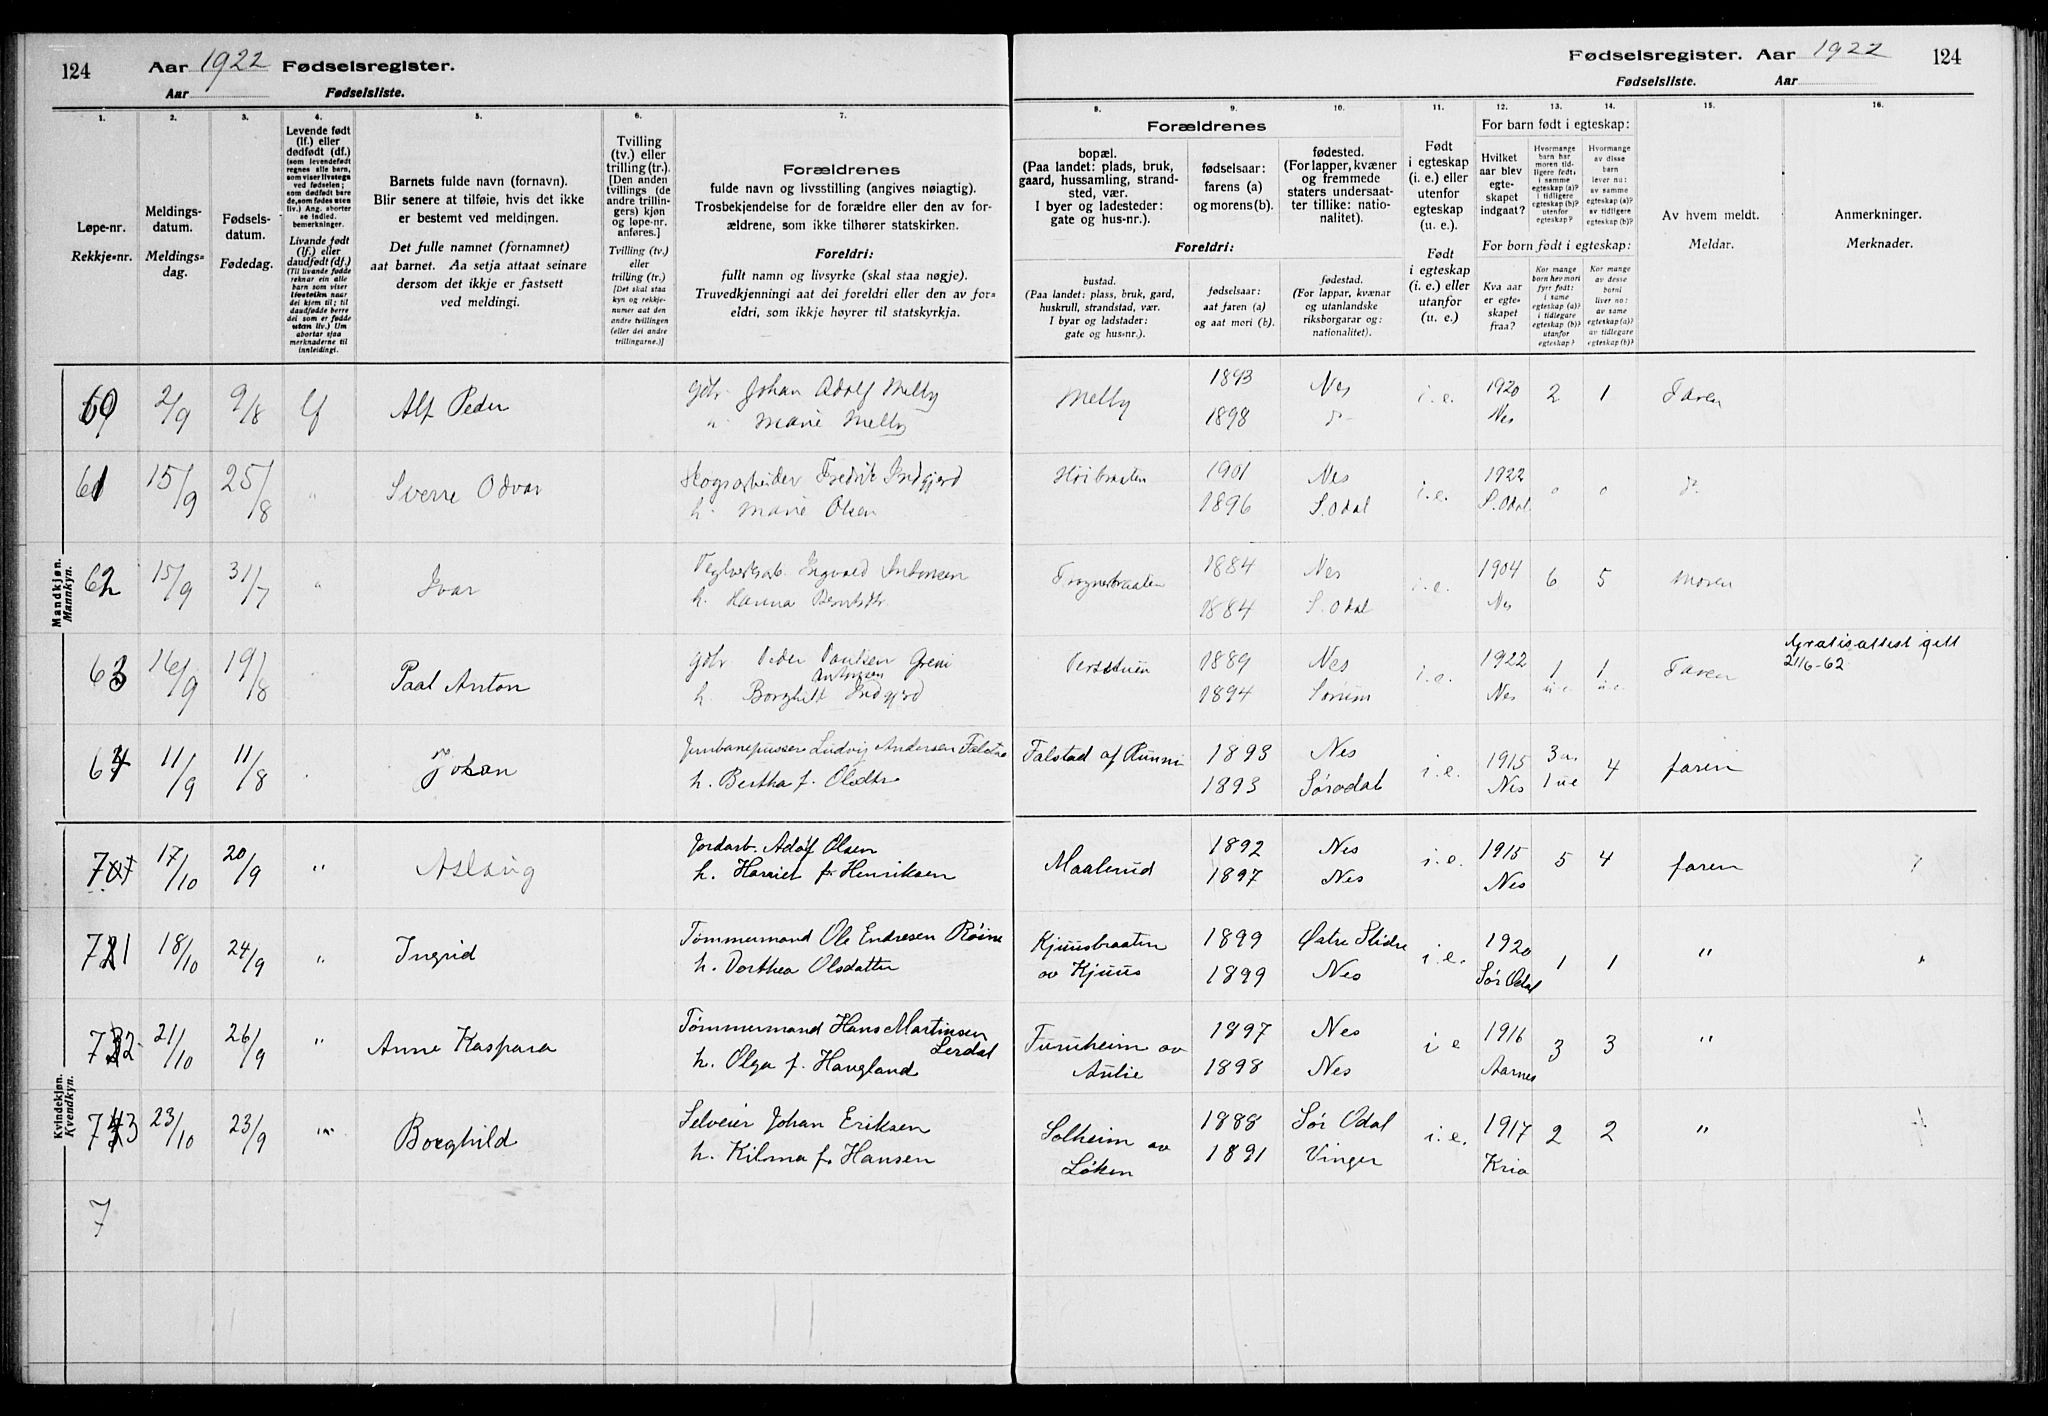 124
Aar 1922 Fødselsregister.
Aar Fødselsliste.
1. 2. 3. 4. 5. 6. 7.
Løpe-nr.
Rekkje-nr.
Meldings-
datum.
Meldings-
dag.
Fødsels-
datum.
Fødedag.
Levende født
(lf.) eller
dødfødt (df.)
(som levendefødt
regnes alle barn,
som viser livstegn
ved fødselen;
som dødfødt bare
de, som fødes uten
liv.) Ang. aborter
se indled.
bemerkninger.
Livande født
(lf.) eller
daudfødt (df.)
(Til livande fødde
reknar ein alle
barn som viser
livsteikn naar
dei kjem til; til
daudfødde berre
dei som er fødde
utan liv.) Um
abortar sjaa
merknaderne til
innleidingi.
Barnets fulde navn (fornavn).
Blir senere at tilføie, hvis det ikke
er bestemt ved meldingen.
Det fulle namnet (fornamnet)
aat barnet. Aa setja attaat seinare
dersom det ikkje er fastsett
ved meldingi.
Tvilling
(tv.) eller
trilling (tr.).
[Den anden
tvillings (de
andre trillin-
gers) kjøn
og løpe-nr.
anføres.]
Tvilling (tv.)
eller
trilling (tr.).
[Det skal staa
kyn og rekkje-
numer aat den
andre tvillingen
(eller dei andre
trillingarne.)]
Forældrenes
fulde navn og livsstilling (angives nøiagtig).
Trosbekjendelse for de forældre eller den av for-
ældrene, som ikke tilhører statskirken.
Foreldri:
fullt namn og livsyrke (skal staa nøgje).
Truvedkjenningi aat dei foreldri eller den av for-
eldri, som ikkje høyrer til statskyrkja.
Mandkjøn.
Mannkyn.
60 2/9 9/8 lf Alf Peder
Gbr. Johan Adolf Melby
h. Marie Melby
61 15/9 25/8 " Sverre Odvar
Skogsarbeider Fredrik Indgjerd
h. Marie Olsen
62 15/9 31/7 " Ivar
Ingvald Antonsen
h.
63 16/9 19/8 Paal Anton
Gbr Peder Paulsen Greni
Antonsen
h. Borghild Indgjerd
64 11/9 11/8 Johan
Ludvig Andersen Falstad
h. Bertha f. Olsdtr
Kvindekjøn.
Kvendkyn.
70 17/10 20/9 " Aslaug
Jordarb. Adolf Olsen
h. Harriet f. Henriksen
71 18/10 24/9 " Ingrid
Tømmermand Ole Endresen Röine
h. Dorthea Olsdatter
72 21/10 26/9 " Anne Kaspara
Tømmermand Hans Martinsen
Lerdal
h. Olga f. Haugland
73 23/10 23/9 " Borghild
Selveier Johan Eriksen
h. Kilma f. Hansen
7
Fødselsregister. Aar 1922 124
Fødselsliste. Aar
8. 9. 10. 11. 12. 13. 14. 15. 16.
Forældrenes
bopæl.
(Paa landet: plads, bruk,
gaard, hussamling, strand-
sted, vær.
I byer og ladesteder:
gate og hus-nr.).
fødselsaar:
farens (a)
og morens (b).
fødested.
(For lapper, kvæner
og fremmede
staters undersaat-
ter tillike: natio-
nalitet).
Foreldri:
bustad.
(Paa landet: plass, bruk, gard,
huskrull, strandstad, vær.
I byar og ladstader:
gate og hus-nr.).
fødselsaar:
aat faren (a)
og aat mori (b).
fødestad.
(For lappar, kvænar
og utanlandske
riksborgarar og:
nationalitet).
Født
i egteskap
(i. e.) eller
utenfor
egteskap
(u. e.).
Født
i egteskap
(i. e.) eller
utanfor
egteskap
(u. e.)
For barn født i egteskap:
Hvilket
aar blev
egte-
skapet
indgaat?
Hvormange
barn har
moren tid-
ligere født:
i samme
egteskap (a)?
i tidligere
egteskap (b)?
utenfor
egteskap?
Hvormange
av disse
barn
lever nu:
av samme
egteskap (a)?
av tidligere
egteskap (b)?
For born født i egteskap:
Kva aar
er egte-
skapet
fraa?
Kor mange
born hev mori
fyrr født:
i same
egteskap (a)?
i tidlegare
egteskap (b)?
utanfor
egteskap?
Kor mange
av desse
borni
liver no:
av same
egteskap (a)?
av tidlegare
egteskap (b)?
Av hvem meldt.
Meldar.
Anmerkninger.
Merknader.
Melby 1893 Nes i.e. 1920 2 1 Faren
1898 do Nes
Høibraaten 1901 Nes i.e. 1922 0 0 do.
1896 S. Odal S. Odal
Trognerbraaten 1884 Nes i.e. 1904 6 5 Moren
1884 S. Odal Nes
1889 Nes i.e. 1922 1 1 Faren Gratisattest gitt
1894 Sørum Nes u.e. u.e. 21/6-62
Falstad af Runni 1893 Nes i.e. 1915 3 a. 4 faren
1893 Sørodal Nes 1 ue
Maalerud 1892 Nes i.e. 1915 5 4 faren
1897 Nes Nes
Kjuusbraaten 1899 Østre Slidre i.e. 1920 1 1 "
av Kjuus 1899 Nes Sør Odal
Furuheim av 1897 Nes i e 1916 3 3 "
Aulie 1898 Nes Aarnes
Solheim av 1888 Sør Odal i.e. 1917 2 2 "
Løken 1891 Vinger Kria